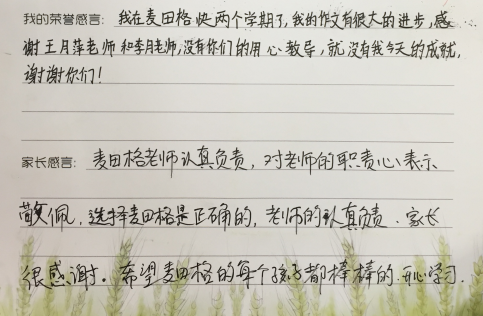 我的荣誉感言：我在麦田格快两个学期了，我的作文有很大的进步，感
谢王月萍老师和李月老师，没有你们的用心教导，就没有我今天的成就，
谢谢你们！
家长感言：麦田格老师认真负责，对老师的职责心表示
敬佩，选择麦田格是正确的，老师的认真负责、家长
很感谢。希望麦田格的每个孩子都棒棒的开心学习.